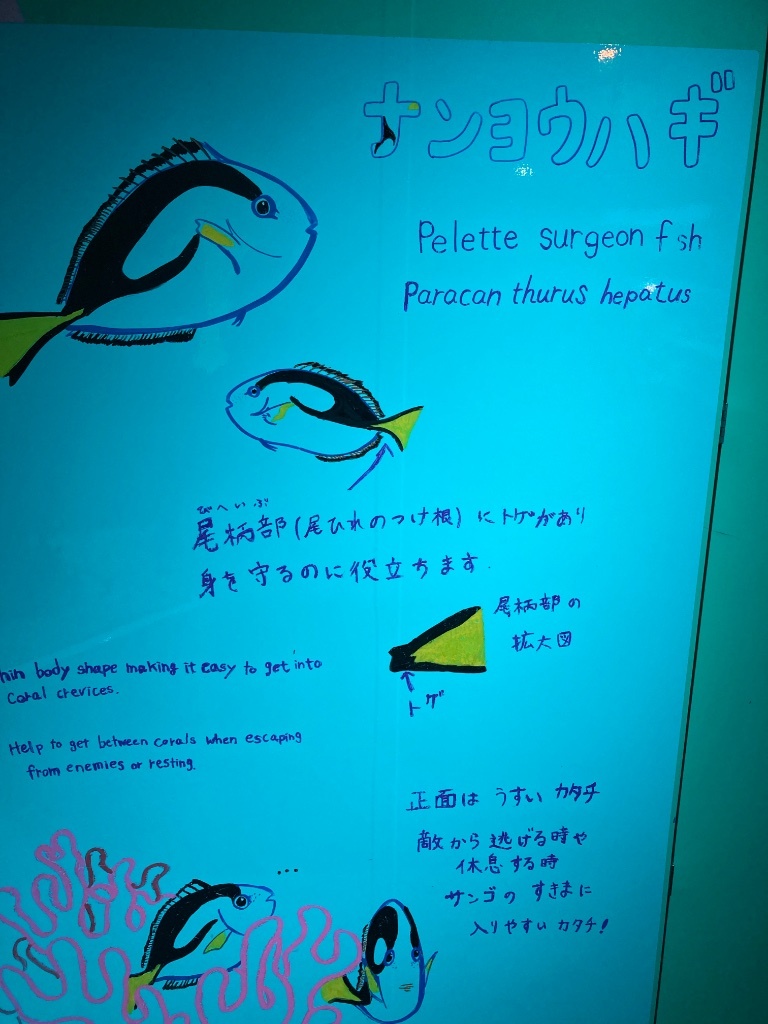 ナンヨウハギ
Pelette surgeon fsh
Paracan thurus hepatus
びへいぶ
尾柄部(尾ひれのつけ根)にトゲがあり
身を守るのに役立ちます.
尾柄部の
拡大図
トゲ
hin body shape making it easy to get into
coral crevices.
Help to get between corals when escaping
from enemies or resting.
正面は うすい カタチ
敵から逃げる時や
休息する時
サンゴの すきまに
入りやすい カタチ!
...